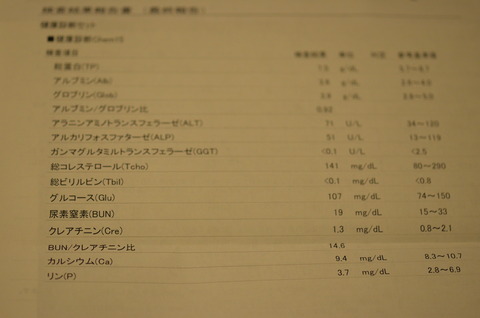 検査結果報告書 (最終報告)
健康診断セット
■健康診断(Chem15)
検査項目 検査結果 単位 判定 参考基準値
総蛋白(TP) g/dL 5.7～8.7
アルブミン(Alb) g/dL
グロブリン(Glob) g/dL
アルブミン/グロブリン比
アラニンアミノトランスフェラーゼ(ALT) 71 U/L
アルカリフォスファターゼ(ALP) 51 U/L 13～119
ガンマグルタミルトランスフェラーゼ(GGT) <0.1 U/L <2.5
総コレステロール(Tcho) 141 mg/dL
総ビリルビン(Tbil) <0.1 mg/dL <0.8
グルコース(Glu) 107 mg/dL 74～150
尿素窒素(BUN) 19 mg/dL 15～33
クレアチニン(Cre) 1.3 mg/dL 0.8～2.1
BUN/クレアチニン比 14.6
カルシウム(Ca) 9.4 mg/dL 8.3～10.7
リン(P) 3.7 mg/dL 2.8～6.9